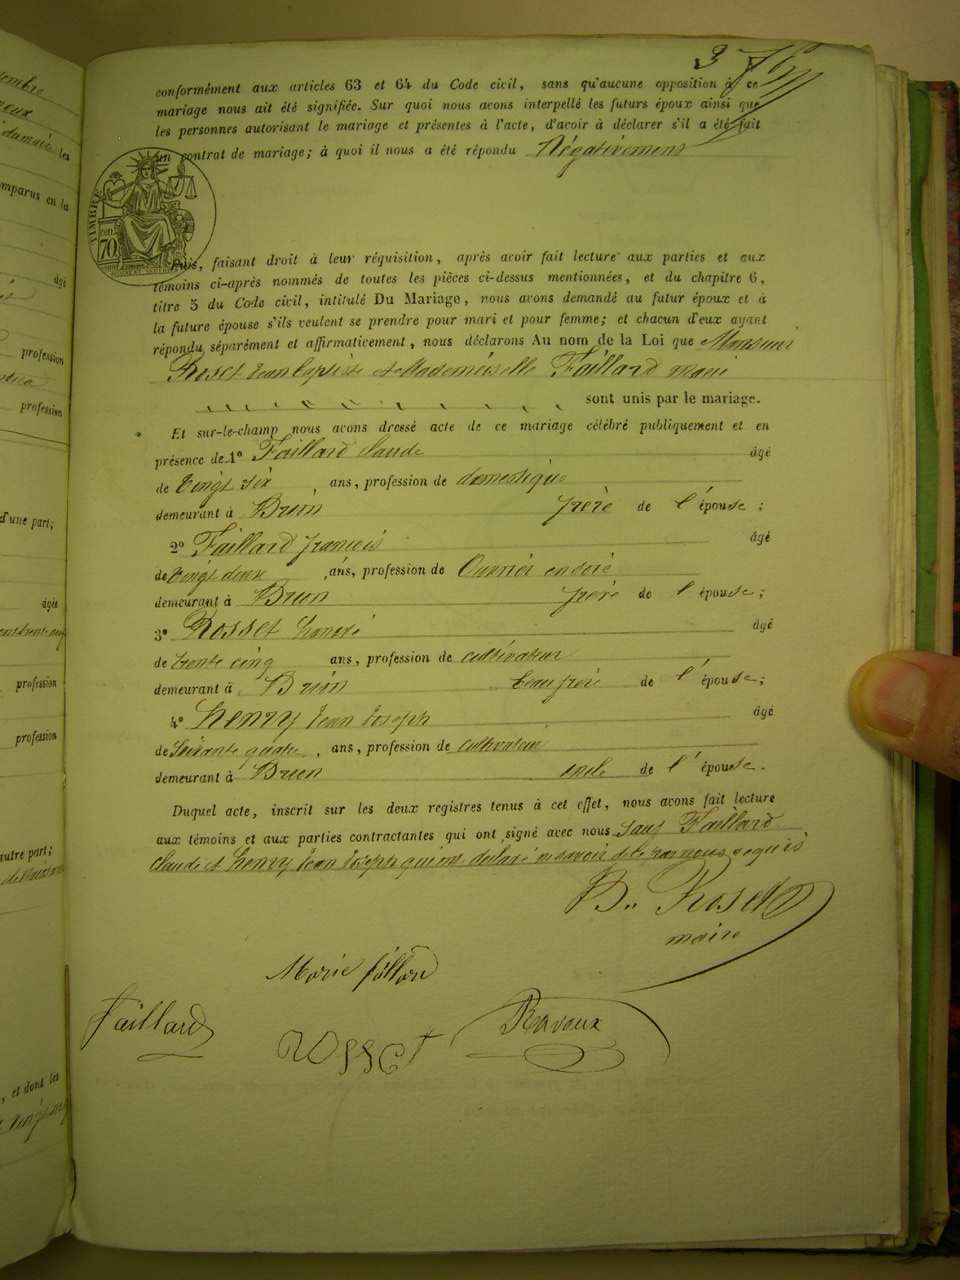 3
conformément aux articles 63 et 64 du Code civil, sans qu'aucune opposition à ce
mariage nous ait été signifiée. Sur quoi nous avons interpellé les futurs époux ainsi que
les personnes autorisant le mariage et présentes à l'acte, d'avoir à déclarer s'il a été fait
un contrat de mariage; à quoi il nous a été répondu Négativement
TIMBRE
70 cent
Puis, faisant droit à leur réquisition, après avoir fait lecture aux parties et aux
témoins ci-après nommés de toutes les pièces ci-dessus mentionnées, et du chapitre 6,
titre 5 du Code civil, intitulé Du Mariage, nous avons demandé au futur époux et à
la future épouse s'ils veulent se prendre pour mari et pour femme; et chacun d'eux ayant
répondu séparément et affirmativement, nous déclarons Au nom de la Loi que Monsieur
Roset Jean Baptiste et Mademoiselle Faillard Marie
sont unis par le mariage.
Et sur-le-champ nous avons dressé acte de ce mariage célébré publiquement et en
présence de 1º Faillard Claude âgé
de vingt six, ans, profession de domestique
demeurant à Brun frère de l'épouse;
2º Faillard françois âgé
de vingt deux, ans, profession de Ouvrier en soie
demeurant à Brun frère de l'épouse;
3º Rosset honoré âgé
de trente cinq ans, profession de cultivateur
demeurant à Brun beau frère de l'épouse;
4º henry Jean Joseph âgé
de Soixante quatre, ans, profession de cultivateur
demeurant à Brun oncle de l'épouse.
Duquel acte, inscrit sur les deux registres tenus à cet effet, nous avons fait lecture
aux témoins et aux parties contractantes qui ont signé avec nous Sauf Faillard
Claude et henry Jean Joseph qui ont déclaré ne savoir de ce par nous requis
B. Roset
maire
Marie fillard
Faillard
rosset
Ravoux
profession
profession
d'une part;
âgée
profession
profession
autre part;
, et dont les